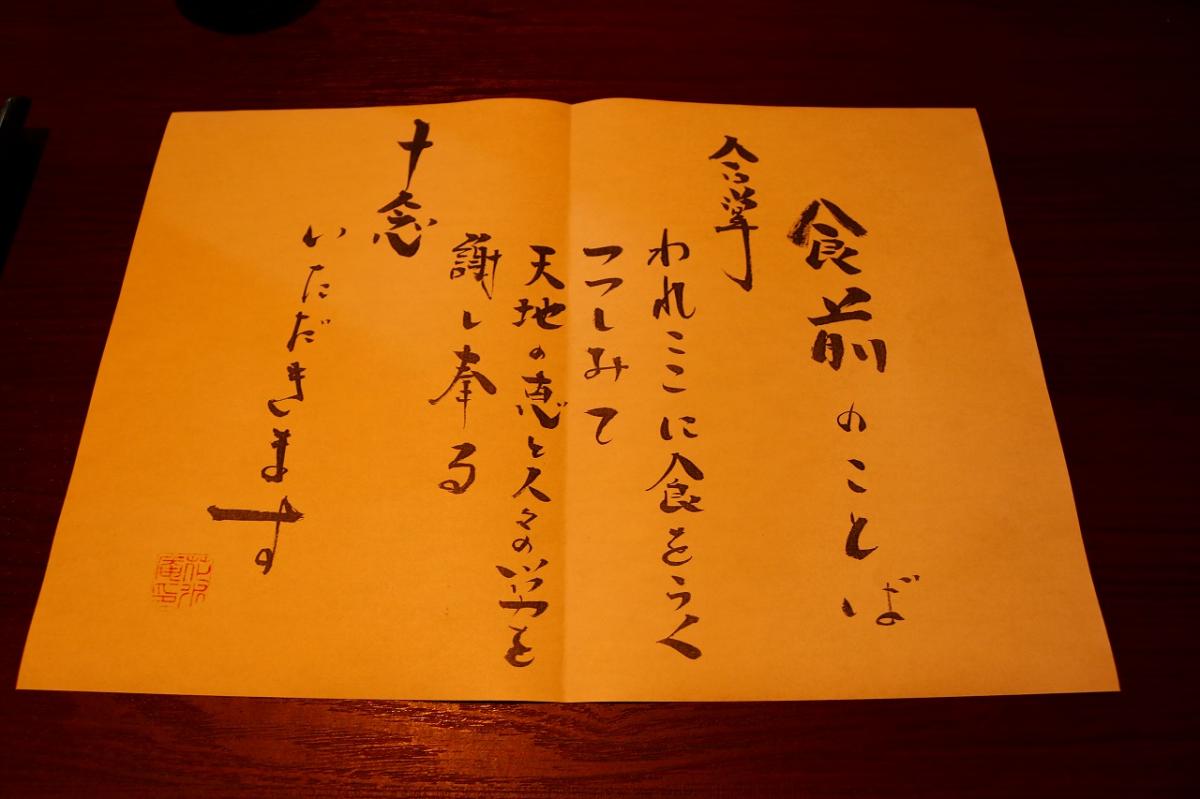 食前のことば
合掌
われここに食をうく
つつしみて
天地の恵と人々の労を
謝し奉る
十念
いただきます